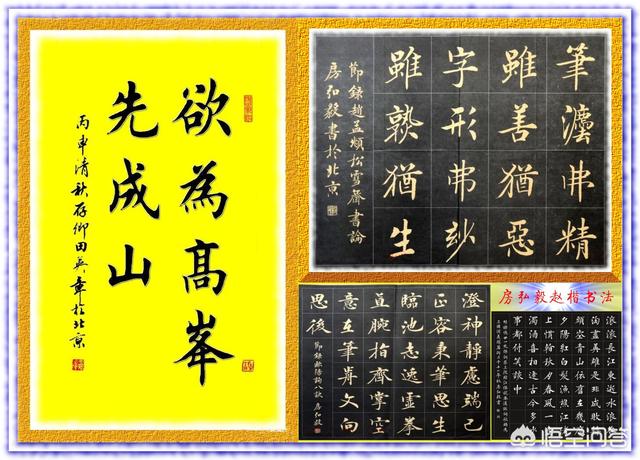 欲為髙峯
先成山
丙申清秋存卿田英章於北京
筆灋弗精
雖善猶惡
字形弗玅
雖熟猶生
節錄趙孟頫松雪齋書論
房弘毅書於北京
澄神靜慮端己
正容秉筆思生
臨池志逸虛拳
直腕指齊掌空
意在筆前文向
思後
節錄歐陽詢八訣 房弘毅
房弘毅赵楷书法
滚滚長江東逝水浪花
淘盡英雄是非成敗轉
頭空青山依舊在幾度
夕陽紅白髮漁樵江渚
上慣看秋月春風一壺
濁酒喜相逢古今多少
事都付笑談中
悟空问答